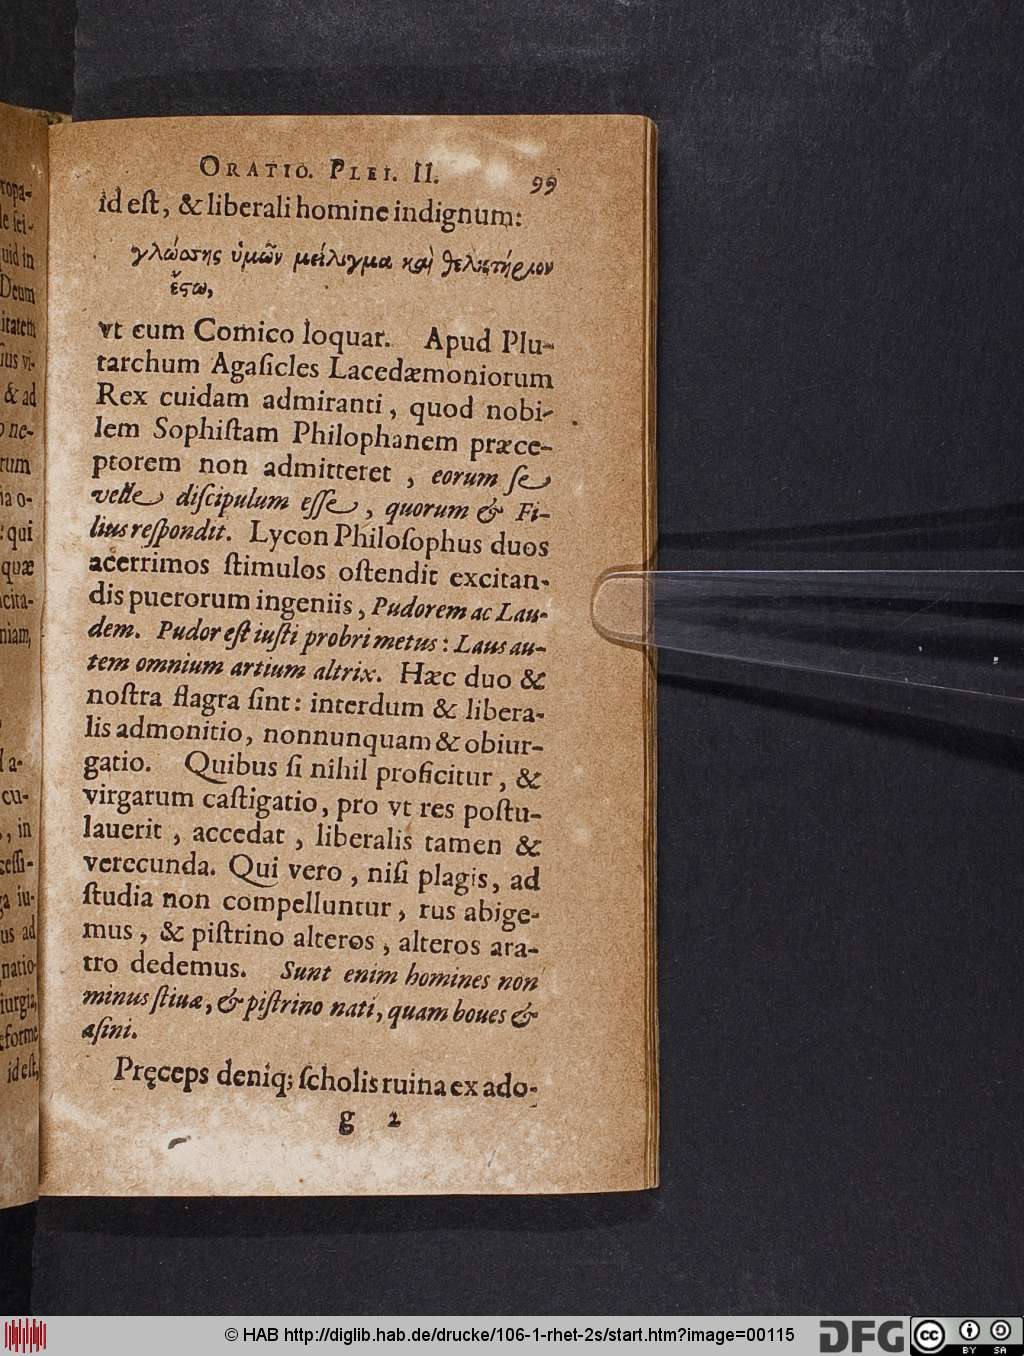 ORATIO. PLEI. II. 99
id eſt, & liberali homine indignum:
γλώσσης ὑμῶν μείλιγμα καὶ θελκτήριον
ἔστω,
vt cum Comico loquar. Apud Plu-
tarchum Agaſicles Lacedæmoniorum
Rex cuidam admiranti, quod nobi-
lem Sophiſtam Philophanem præce-
ptorem non admitteret, eorum ſe
velle diſcipulum eſſe, quorum & Fi-
lius reſpondit. Lycon Philoſophus duos
acerrimos ſtimulos oſtendit excitan-
dis puerorum ingeniis, Pudorem ac Lau-
dem. Pudor eſt iuſti probri metus: Laus au-
tem omnium artium altrix. Hæc duo &
noſtra flagra ſint: interdum & libera-
lis admonitio, nonnunquam & obiur-
gatio. Quibus ſi nihil proficitur, &
virgarum caſtigatio, pro vt res poſtu-
lauerit, accedat, liberalis tamen &
verecunda. Qui vero, niſi plagis, ad
ſtudia non compelluntur, rus abige-
mus, & piſtrino alteros, alteros ara-
tro dedemus. Sunt enim homines non
minus ſtiuæ, & piſtrino nati, quam boues &
aſini.
Pręceps deniq; ſcholis ruina ex ado-
g 2
ropa-
uid in
Deum
itatem
ſius vi-
& ad
ne-
rum
ia o-
: qui
quæ
cita-
niam,
a-
cu-
, in
ceſſi-
ga iu-
us ad
natio-
iurgia,
eforme
id eſt,
© HAB http://diglib.hab.de/drucke/106-1-rhet-2s/start.htm?image=00115
DFG
cc BY SA